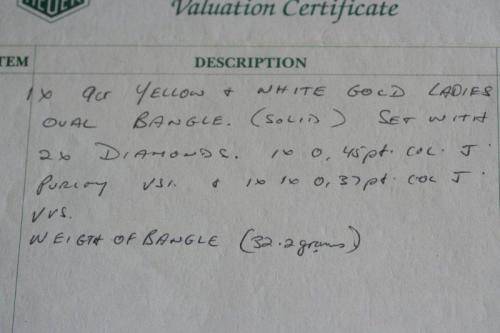 HEUER
Valuation Certificate
TEM DESCRIPTION
1x 9ct YELLOW + WHITE GOLD LADIES
OVAL BANGLE. (SOLID) SET WITH
2x DIAMONDS. 1x 0,45pt. COL. J
PURITY VSI. + 1x 1x 0,37pt. COL J
VVS.
WEIGTH OF BANGLE (32.2grams)